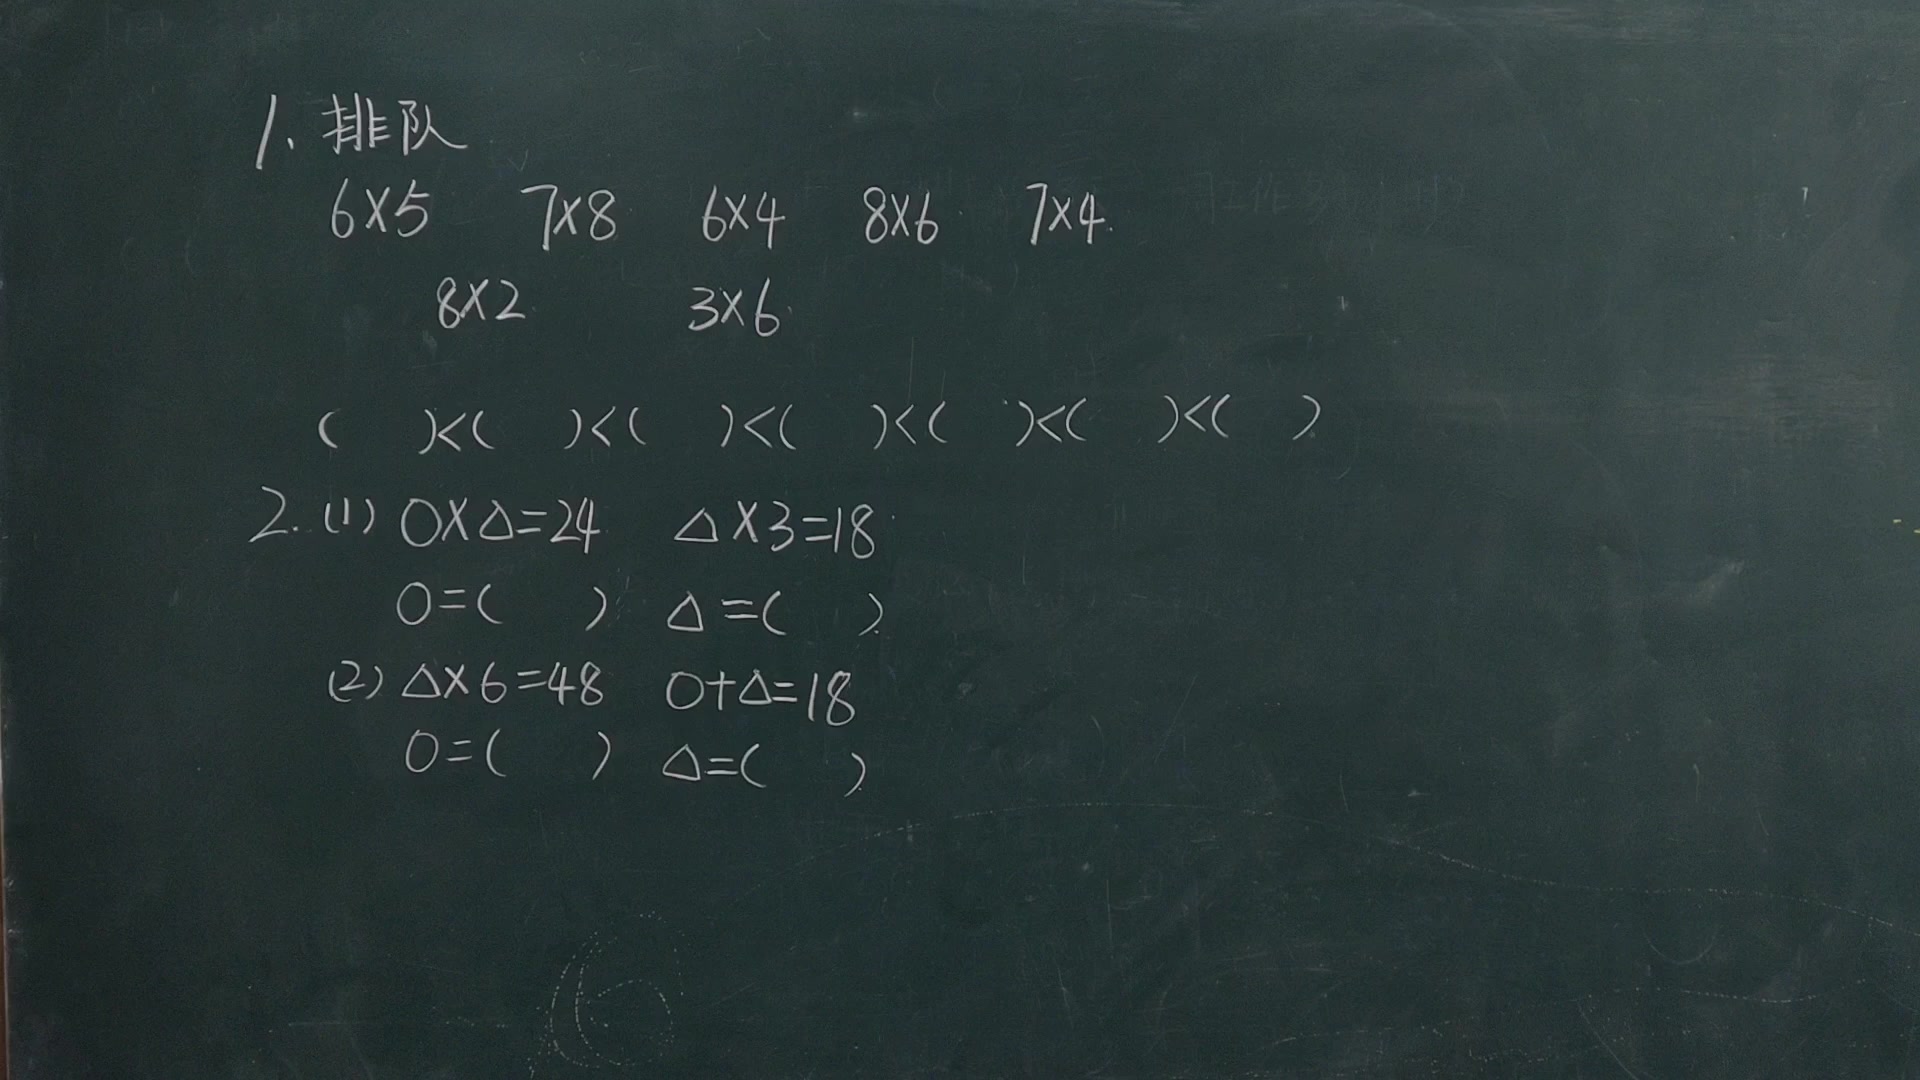 1. 排队
6×5 7×8 6×4 8×6 7×4
8×2 3×6
( )<( )<( )<( )<( )<( )<( )
2. (1) ○×△=24 △×3=18
○=( ) △=( )
(2) △×6=48 ○+△=18
○=( ) △=( )